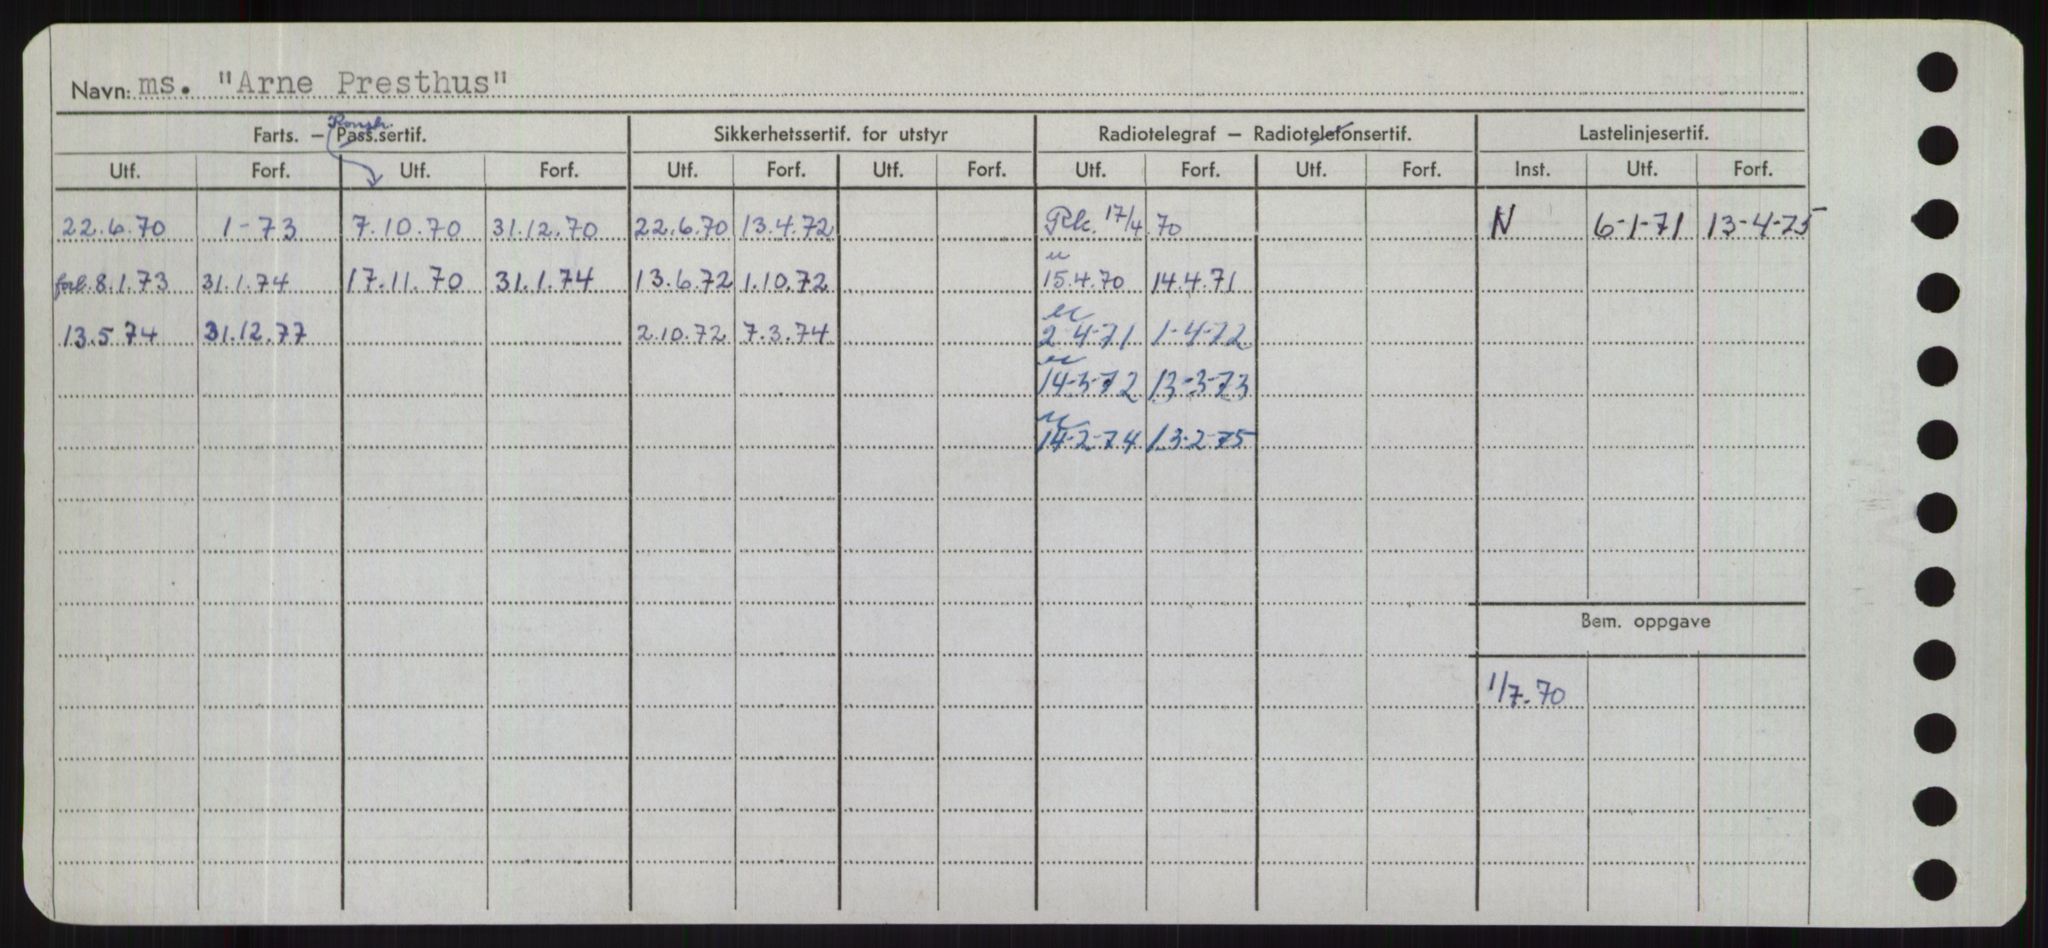 Navn: ms. "Arne Presthus"
Konstr.
Farts. — Pass.sertif. Sikkerhetssertif. for utstyr Radiotelegraf — Radiotelefonsertif. Lastelinjesertif.
Utf. Forf. Utf. Forf. Utf. Forf. Utf. Forf. Utf. Forf. Utf. Forf. Inst. Utf. Forf.
22.6.70 1-73 7.10.70 31.12.70 22.6.70 13.4.72 17/4.70 N 6-1-71 13-4-75
forl. 8.1.73 31.1.74 17.11.70 31.1.74 13.6.72 1.10.72 15.4.70 14.4.71
13.5.74 31.12.77 2.10.72 7.3.74 2-4-71 1-4-72
14-3-72 13-3-73
14-2-74 13-2-75
Bem. oppgave
1/7.70